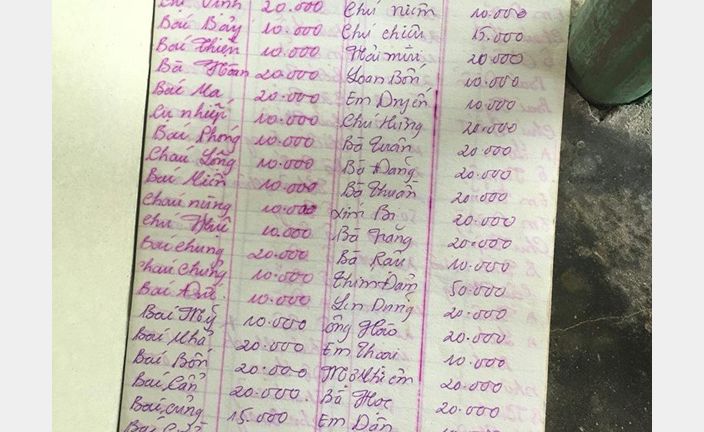 Chú Vinh 20.000 Chú niệm 10.000
Bác Bảy 10.000 Chú chiểu 15.000
Bác Thiện 10.000 Hải mùi 20.000
Bà Hoan 20.000 Loan Bốn 10.000
Bác Ma 20.000 Em Duyến 10.000
Cu nhiếp 10.000 Chú Hưng 20.000
Bác Phong 10.000 Bà Tuấn 20.000
Cháu Long 10.000 Bà Đang 20.000
Bác Miên 10.000 Bà Thuấn 20.000
Cháu nưng 10.000 20.000
Chú Huê 10.000 Bà Hằng 20.000
Bác chung 20.000 Bà Rău 10.000
Cháu Chung 10.000 Thím Đảm 50.000
Bác 10.000 Dung 20.000
Bác Mỹ 10.000 Ông Hảo 20.000
Bác Nhã 20.000 Em Thoại 10.000
Bác Bốn 20.000 20.000
Bác Cần 20.000 Bà Học 20.000
Bác cung 15.000 Em Dần
Bác